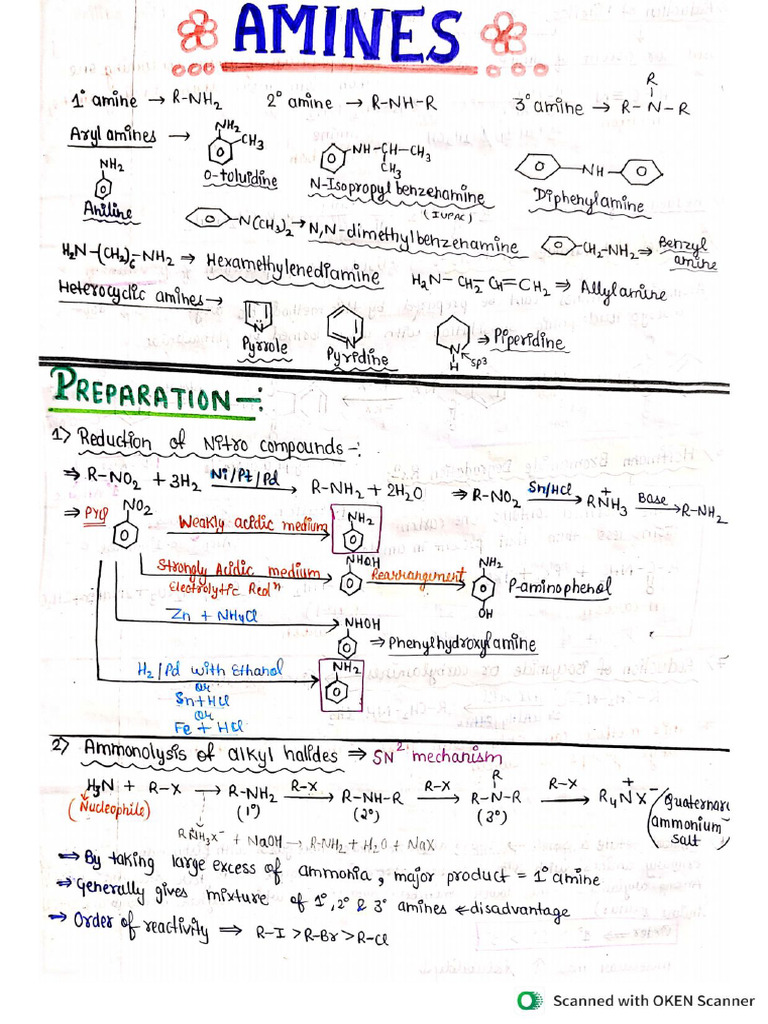 AMINES
1° amine → R-NH2 2° amine → R-NH-R 3° amine → R-N-R
R
Aryl amines →
NH2
CH3
O-toluidine
NH-CH-CH3
CH3
N-Isopropyl benzenamine
(IUPAC)
-NH-
Diphenylamine
NH2
Aniline
-N(CH3)2 → N,N-dimethylbenzenamine
-CH2-NH2 ⇒ Benzyl amine
H2N-(CH2)6-NH2 ⇒ Hexamethylenediamine
H2N-CH2-CH=CH2 ⇒ Allylamine
Heterocyclic amines →
N
Pyrrole
N
Pyridine
N
H
sp3
⇒ Piperidine
PREPARATION -:
1> Reduction of Nitro compounds -:
⇒ R-NO2 + 3H2 Ni/Pt/Pd → R-NH2 + 2H2O ⇒ R-NO2 Sn/HCl → RNH3+ Base → R-NH2
⇒ PYQ NO2
Weakly acidic medium → NH2
Strongly Acidic medium
Electrolytic Redⁿ
NHOH
Rearrangement
NH2
OH
P-aminophenol
Zn + NH4Cl → NHOH
⇒ Phenylhydroxylamine
H2/Pd with Ethanol → NH2
or
Sn+HCl
or
Fe + HCl
2> Ammonolysis of alkyl halides ⇒ SN2 mechanism
H3N + R-X → R-NH2 R-X → R-NH-R R-X → R-N-R R-X → R4N+X-
R
(Nucleophile) (1°) (2°) (3°)
(Quaternary ammonium salt
RNH3X- + NaOH → R-NH2 + H2O + NaX
⇒ By taking large excess of ammonia, major product = 1° amine
⇒ Generally gives mixture of 1°, 2° & 3° amines ← disadvantage
→ Order of reactivity ⇒ R-I > R-Br > R-Cl
Scanned with OKEN Scanner